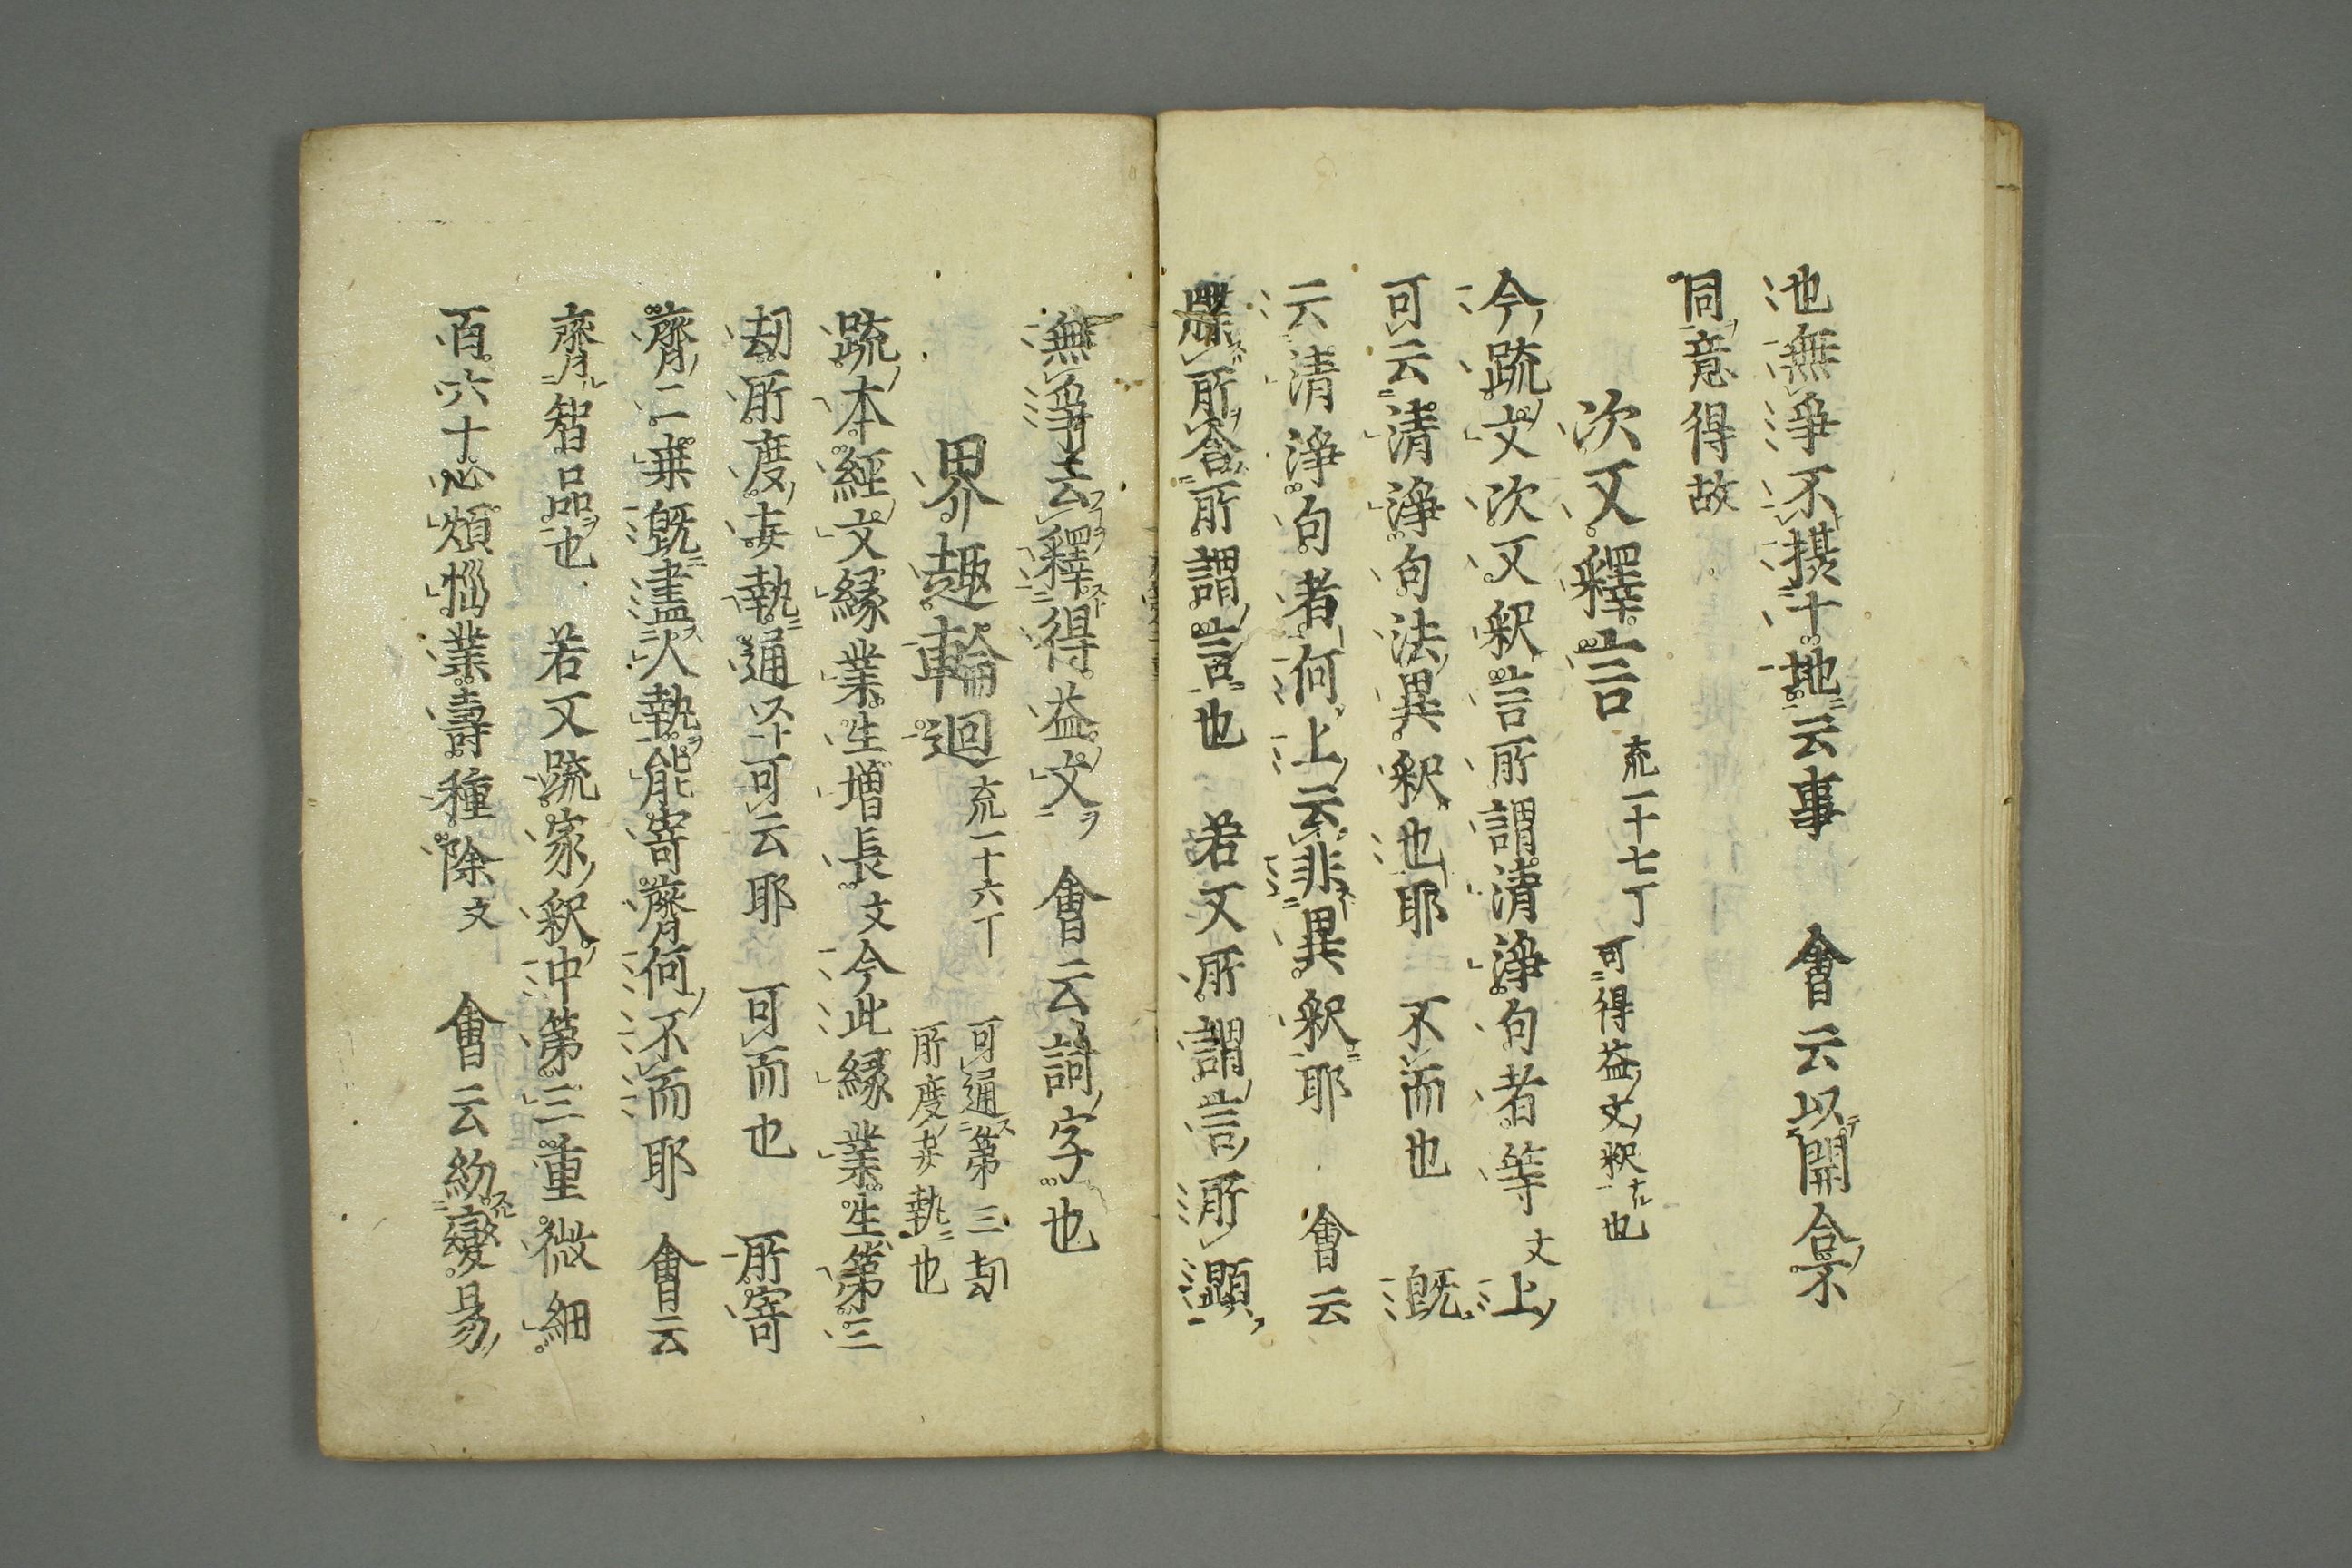 池無諍不摂十地云事　會云以開合不
同意得故
次又釋言　疏一十七丁　可得益文釈ナル也
今疏文次又釈言所謂清浄句者等文上
可云清浄句法異釈也耶　不而也　既
云清浄句者何上云非異釈耶　會云
所含所謂言也　若又所謂言所顕
無諍云釋得益文ヲ　會云詞字也
界趣輪迴　疏一十六丁　可通第三劫
所度妄執也
疏本經文縁業生増長文今此縁業生第三
劫所度妄執通スト可云耶　可而也　所寄
齊二乗既盡人執能寄齊何不而耶　會云
齊智品也　若又疏家釈中第三重微細
百六十心煩悩業壽種除文　會云約變易